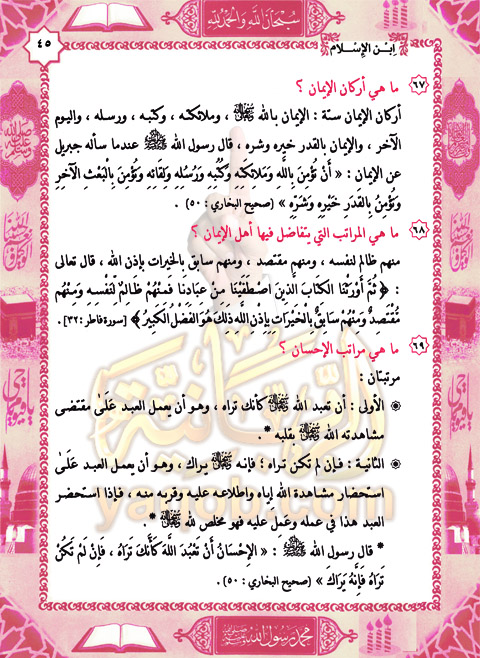 سُبْحَانَ اللَّهِ وَالحَمْدُ لِلَّهِ
٤٥
ابْنُ الإِسْلَام
٦٧ ما هي أركان الإيمان ؟
أركان الإيمان ستة : الإيمان بالله ﷻ ، وملائكته ، وكتبه ، ورسله ، واليوم
الآخر ، والإيمان بالقدر خيره وشره ، قال رسول الله ﷺ عندما سأله جبريل
عن الإيمان : « أَنْ تُؤْمِنَ بِاللَّهِ وَمَلَائِكَتِهِ وَكُتُبِهِ وَرُسُلِهِ وَلِقَائِهِ وَتُؤْمِنَ بِالْبَعْثِ الآخِرِ
وَتُؤْمِنَ بِالقَدَرِ خَيْرِهِ وَشَرِّهِ » (صحيح البخاري : ٥٠) .
٦٨ ما هي المراتب التي يتفاضل فيها أهل الإيمان ؟
منهم ظالم لنفسه ، ومنهم مقتصد ، ومنهم سابق بالخيرات بإذن الله ، قال تعالى
: ﴿ ثُمَّ أَوْرَثْنَا الْكِتَابَ الَّذِينَ اصْطَفَيْنَا مِنْ عِبَادِنَا فَمِنْهُمْ ظَالِمٌ لِّنَفْسِهِ وَمِنْهُم
مُّقْتَصِدٌ وَمِنْهُمْ سَابِقٌ بِالْخَيْرَاتِ بِإِذْنِ اللَّهِ ذَلِكَ هُوَ الْفَضْلُ الْكَبِيرُ ﴾ [سورة فاطر : ٣٢] .
٦٩ ما هي مراتب الإحسان ؟
مرتبتان :
الأولى : أن تعبد الله ﷻ كأنك تراه ، وهو أن يعمل العبد عَلَىٰ مقتضى
مشاهدته الله ﷻ بقلبه * .
الثانية : فإن لم تكن تراه ؛ فإنه ﷻ يراك ، وهو أن يعمل العبد عَلَىٰ
استحضار مشاهدة الله إياه واطلاعه عليه وقربه منه ، فإذا استحضر
العبد هذا في عمله وعَمِلَ عليه فهو مخلص لله ﷻ * .
* قال رسول الله ﷺ : « الإِحْسَانُ أَنْ تَعْبُدَ اللَّهَ كَأَنَّكَ تَرَاهُ ، فَإِنْ لَمْ تَكُنْ
تَرَاهُ فَإِنَّهُ يَرَاكَ » [صحيح البخاري : ٥٠] .
محمد رسول الله ﷺ